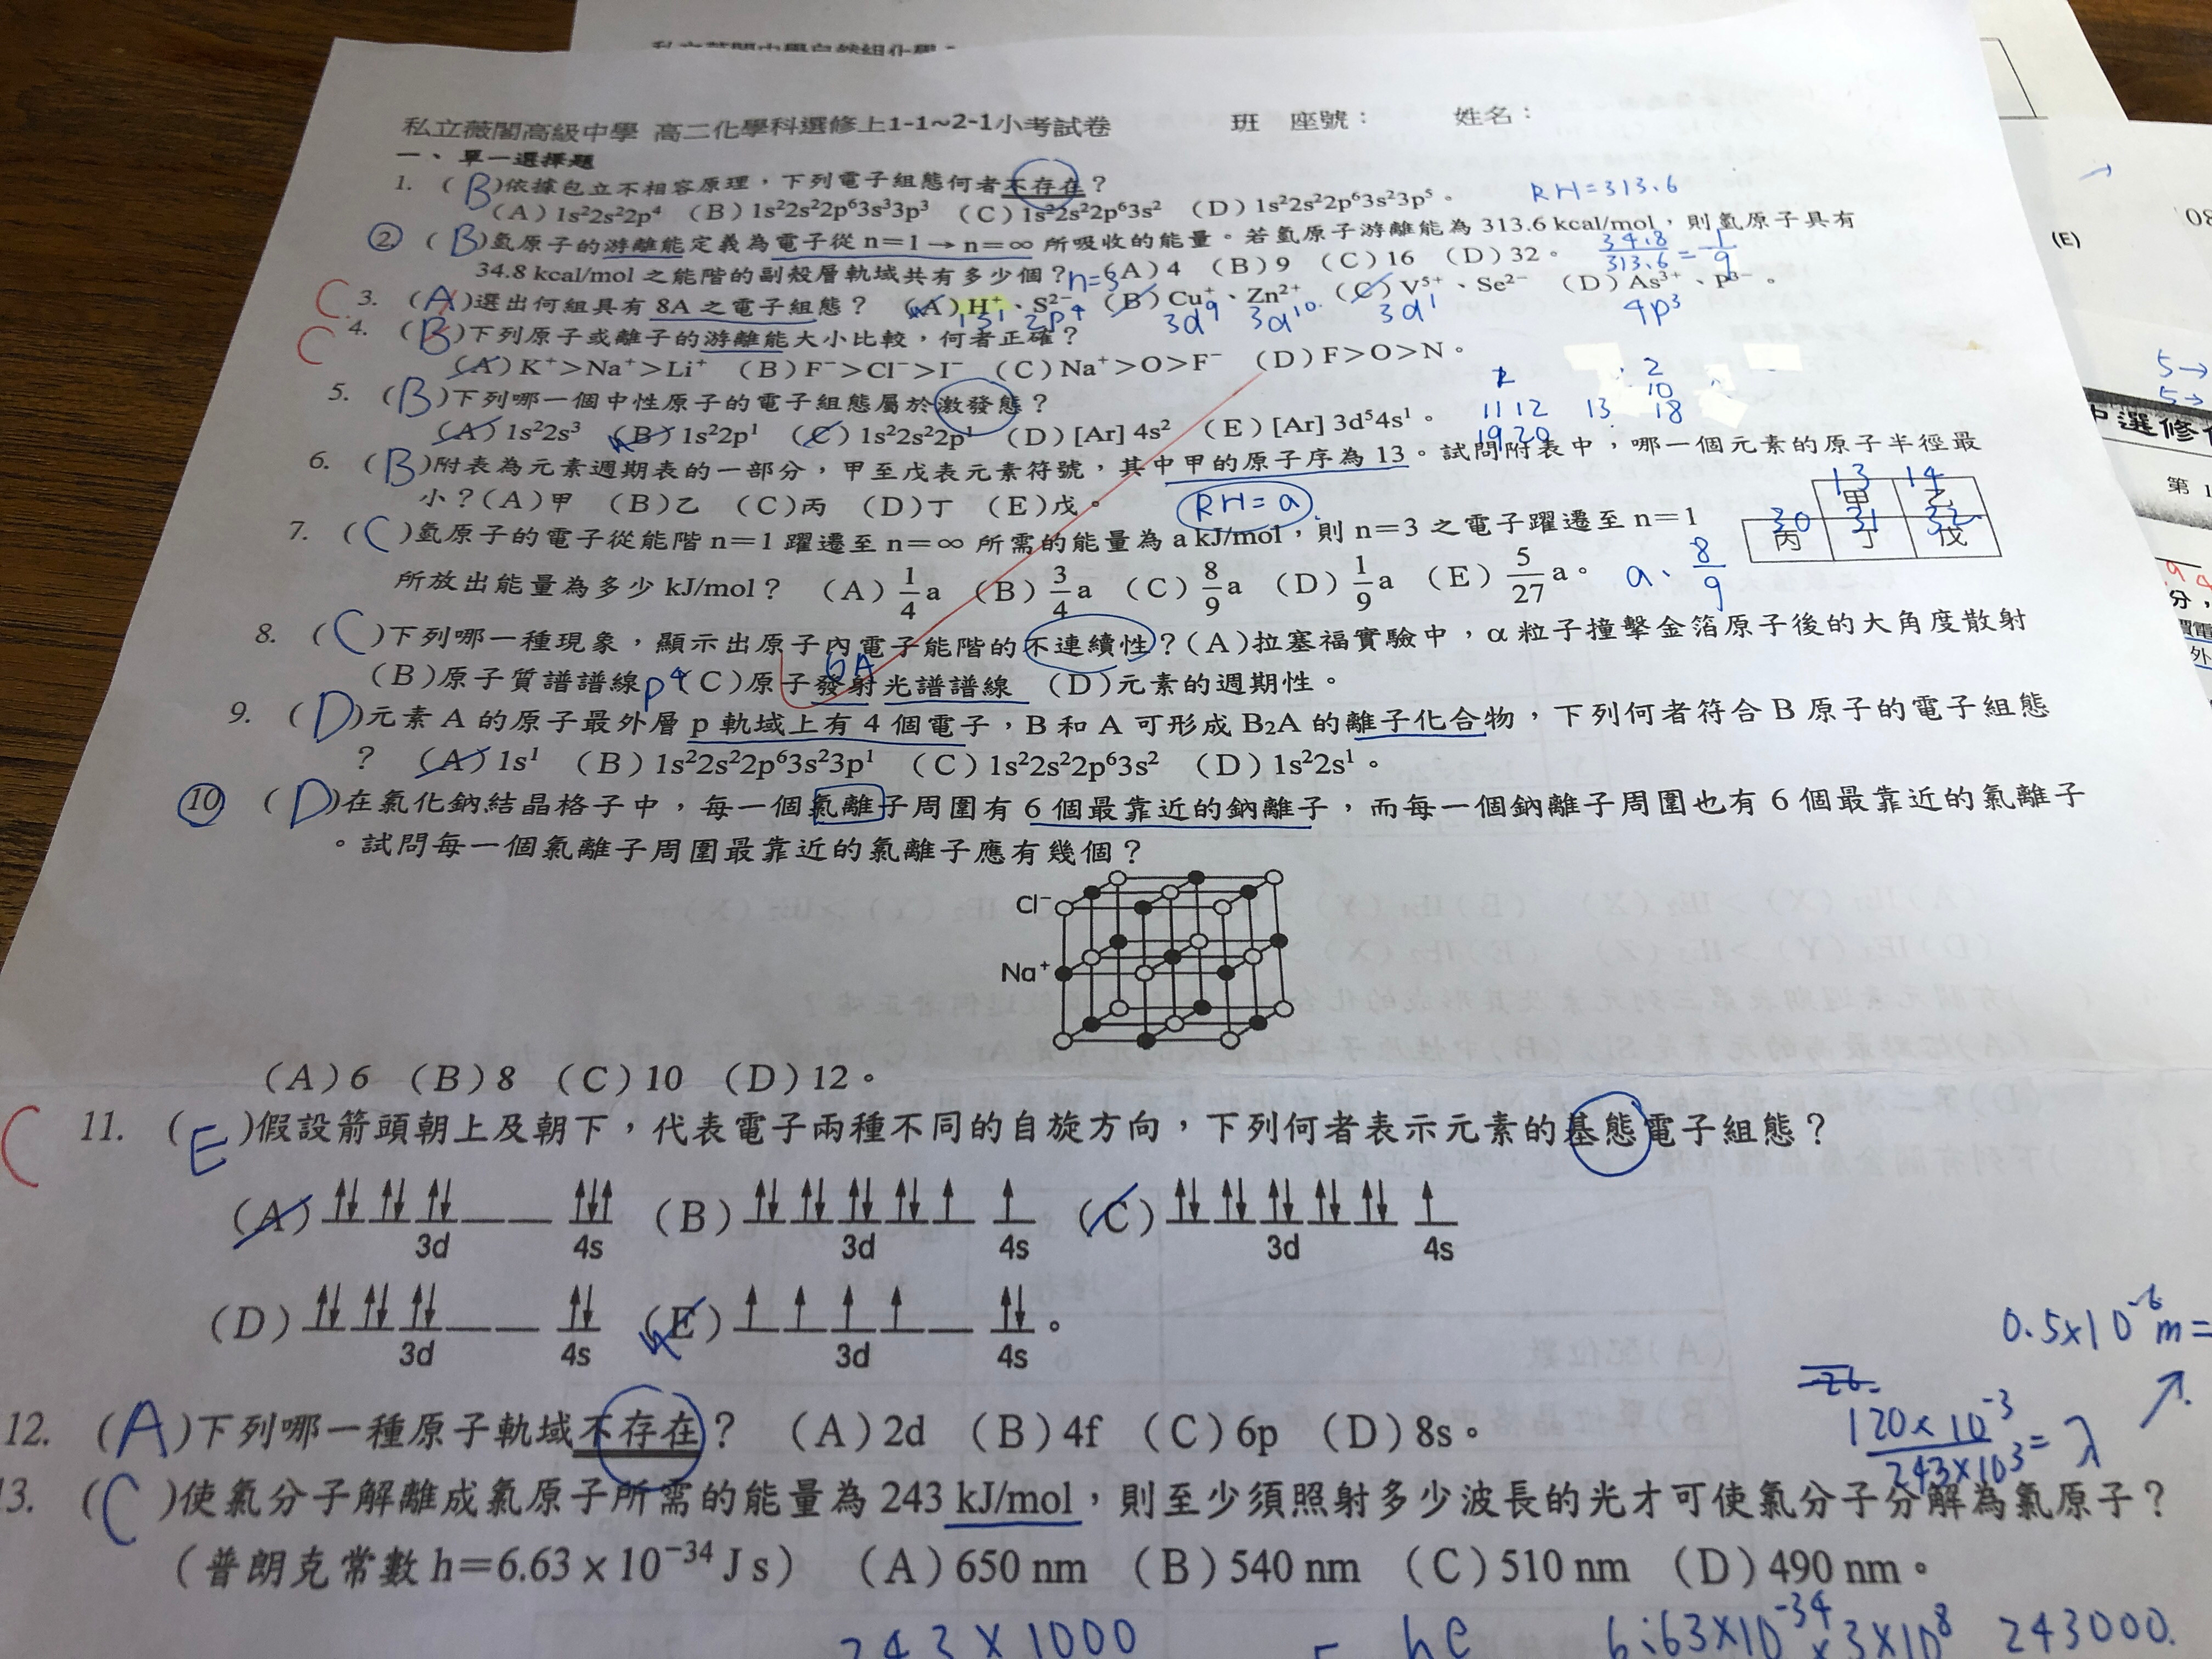 私立薇閣高級中學 高二化學科選修上1-1~2-1小考試卷 班 座號： 姓名：
一、單一選擇題
1. (B)依據包立不相容原理，下列電子組態何者不存在？
(A)1s²2s²2p⁴ (B)1s²2s²2p⁶3s³3p³ (C)1s²2s²2p⁶3s² (D)1s²2s²2p⁶3s²3p⁵。
RH=313.6
2. (B)氫原子的游離能定義為電子從 n=1→n=∞ 所吸收的能量。若氫原子游離能為 313.6 kcal/mol，則氫原子具有
34.8 kcal/mol 之能階的副殼層軌域共有多少個？ (A)4 (B)9 (C)16 (D)32。
n=3
34.8/313.6=1/9
C 3. (A)選出何組具有 8A 之電子組態？ (A)H⁺、S²⁻ (B)Cu⁺、Zn²⁺ (C)V⁵⁺、Se²⁻ (D)As³⁺、P³⁻。
1s¹ 2p⁴ 3d⁹ 3d¹⁰ 3d¹ 4p³
C 4. (B)下列原子或離子的游離能大小比較，何者正確？
(A)K⁺>Na⁺>Li⁺ (B)F⁻>Cl⁻>I⁻ (C)Na⁺>O>F⁻ (D)F>O>N。
5. (B)下列哪一個中性原子的電子組態屬於激發態？
(A)1s²2s³ (B)1s²2p¹ (C)1s²2s²2p¹ (D)[Ar] 4s² (E)[Ar] 3d⁵4s¹。
2
10
11 12 13 18
19 20
6. (B)附表為元素週期表的一部分，甲至戊表元素符號，其中甲的原子序為 13。試問附表中，哪一個元素的原子半徑最
小？(A)甲 (B)乙 (C)丙 (D)丁 (E)戊。
RH=a
13 14
甲 乙
30 31 32
丙 丁 戊
7. (C)氫原子的電子從能階 n=1 躍遷至 n=∞ 所需的能量為 a kJ/mol，則 n=3 之電子躍遷至 n=1
所放出能量為多少 kJ/mol？ (A)1/4a (B)3/4a (C)8/9a (D)1/9a (E)5/27a。
a、8/9
8. (C)下列哪一種現象，顯示出原子內電子能階的不連續性？(A)拉塞福實驗中，α粒子撞擊金箔原子後的大角度散射
(B)原子質譜譜線 (C)原子發射光譜譜線 (D)元素的週期性。
p⁴ 6A
9. (D)元素 A 的原子最外層 p 軌域上有 4 個電子，B 和 A 可形成 B₂A 的離子化合物，下列何者符合 B 原子的電子組態
？ (A)1s¹ (B)1s²2s²2p⁶3s²3p¹ (C)1s²2s²2p⁶3s² (D)1s²2s¹。
10 (D)在氯化鈉結晶格子中，每一個氯離子周圍有 6 個最靠近的鈉離子，而每一個鈉離子周圍也有 6 個最靠近的氯離子
。試問每一個氯離子周圍最靠近的氯離子應有幾個？
Cl⁻
Na⁺
(A)6 (B)8 (C)10 (D)12。
C 11. (E)假設箭頭朝上及朝下，代表電子兩種不同的自旋方向，下列何者表示元素的基態電子組態？
(A) (B) (C)
3d 4s 3d 4s 3d 4s
(D) (E) 。
3d 4s 3d 4s
0.5×10⁻⁶m=
12. (A)下列哪一種原子軌域不存在？ (A)2d (B)4f (C)6p (D)8s。
120×10⁻³/243×10³=λ
13. (C)使氯分子解離成氯原子所需的能量為 243 kJ/mol，則至少須照射多少波長的光才可使氯分子分解為氯原子？
(普朗克常數 h=6.63×10⁻³⁴ J s) (A)650 nm (B)540 nm (C)510 nm (D)490 nm。
243×1000 hc 6.63×10⁻³⁴×3×10⁸ 243000.
(E)
5→
5→
中選修
第 1